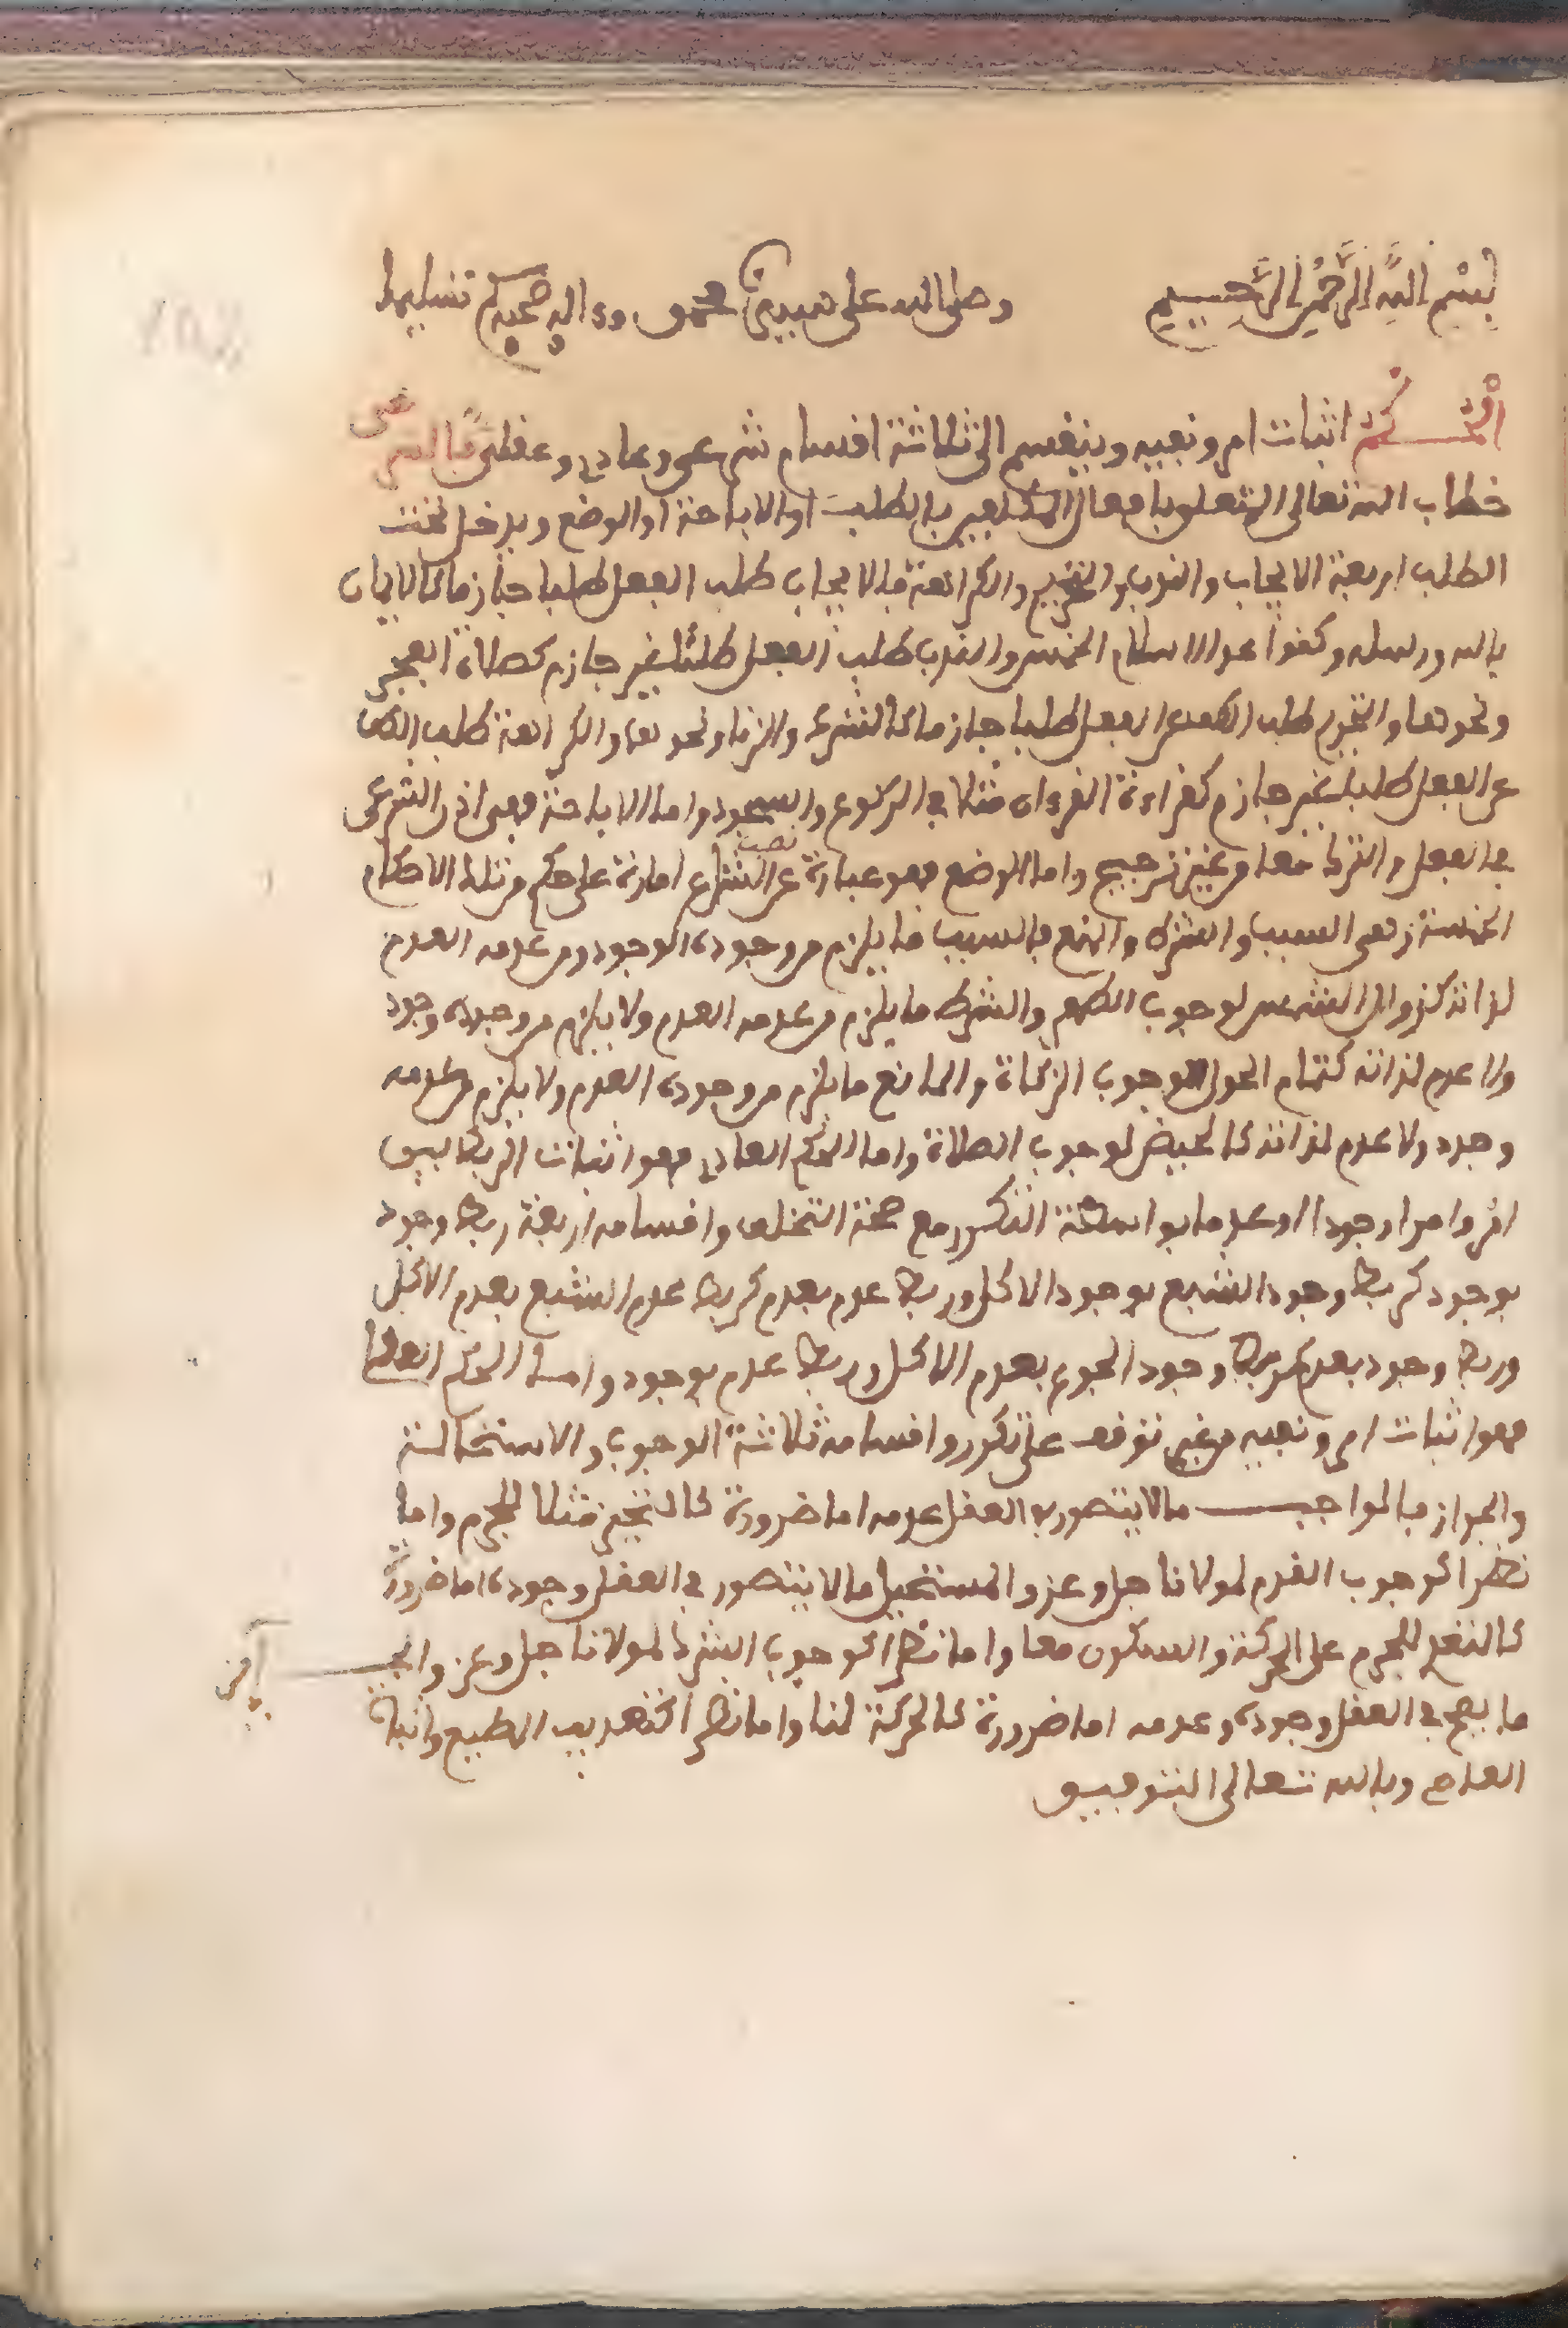 بسم الله الرحمن الرحيم وصلى الله على سيدنا محمد وءاله وصحبه وسلم تسليما
الحكم اثبات امر ونفيه وينقسم الى ثلاثة اقسام شرعي وعادي وعقلي فالشرعي
خطاب الله تعالى المتعلق بافعال المكلفين بالطلب او الاباحة او الوضع ويدخل تحت
الطلب اربعة الايجاب والندب والتحريم والكراهة فالايجاب طلب الفعل طلبا جازما كالايمان
بالله ورسله وكقواعد الاسلام الخمس والندب طلب الفعل طلبا غير جازم كصلاة الفجر
ونحوها والتحريم طلب الكف عن الفعل طلبا جازما كالشرك والزنا ونحوها والكراهة طلب الكف
عن الفعل طلبا غير جازم كقراءة القرءان مثلا في الركوع والسجود واما الاباحة فهي اذن الشرعي
في الفعل والترك معا من غير ترجيح واما الوضع فهو عبارة عن نصب الشارع امارة على حكم من تلك الاحكام
الخمسة وهي السبب والشرط والمانع فالسبب ما يلزم من وجوده الوجود ومن عدمه العدم
لذاته كزوال الشمس لوجوب الظهر والشرط ما يلزم من عدمه العدم ولا يلزم من وجوده وجود
ولا عدم لذاته كتمام الحول لوجوب الزكاة والمانع ما يلزم من وجوده العدم ولا يلزم من عدمه
وجود ولا عدم لذاته كالحيض لوجوب الصلاة واما الحكم العادي فهو اثبات الربط بين
امر وامر وجودا او عدما بواسطة التكرر مع صحة التخلف واقسامه اربعة ربط وجود
بوجود كربط وجود الشبع بوجود الاكل وربط عدم بعدم كربط عدم الشبع بعدم الاكل
وربط وجود بعدم كربط وجود الجوع بعدم الاكل وربط عدم بوجود واما الحكم العقلي
فهو اثبات امر ونفيه من غير توقف على تكرر واقسامه ثلاثة الوجوب والاستحالة
والجواز فالواجب ما لا يتصور في العقل عدمه اما ضرورة كالتحيز مثلا للجرم واما
نظرا كوجوب القدم لمولانا جل وعز والمستحيل ما لا يتصور في العقل وجوده اما ضرورة
كالتعر للجرم على الحركة والسكون معا واما نظرا كوجوب الشرك لمولانا جل وعز والجـ ـايز
ما يصح في العقل وجوده وعدمه اما ضرورة كالحركة لنا واما نظرا كتعذيب المطيع واثابة
العاصي وبالله تعالى التوفيق